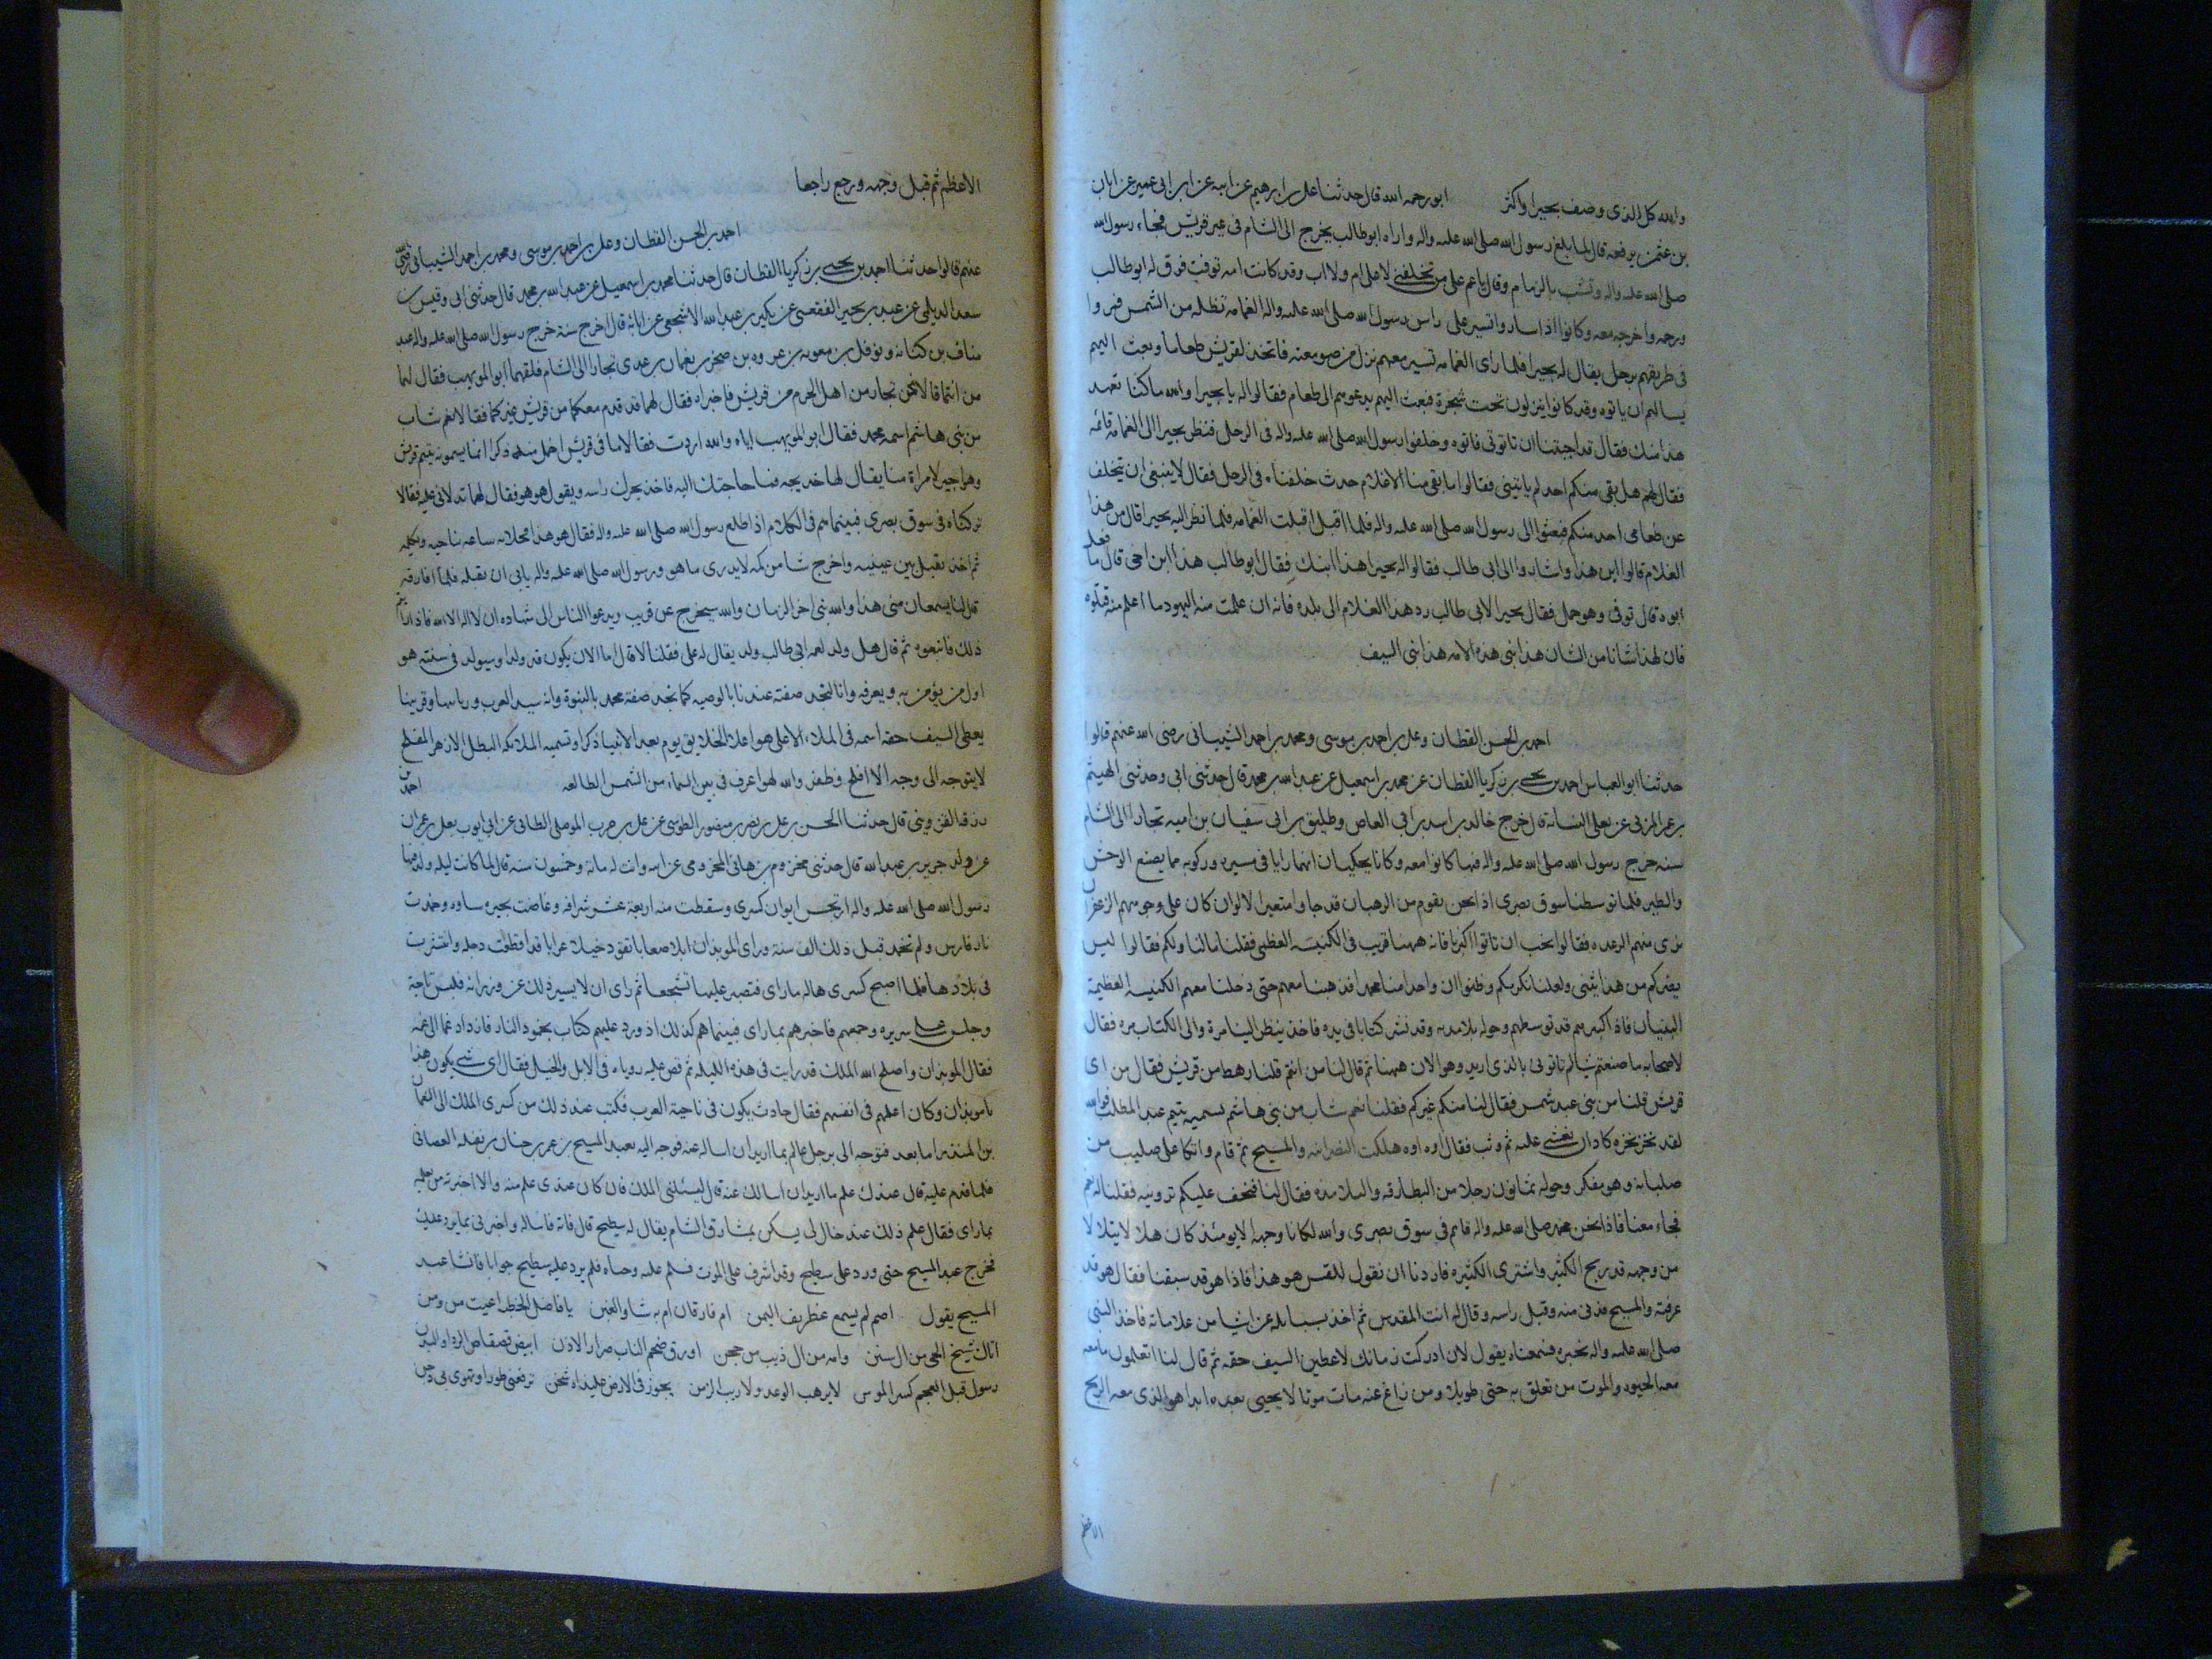 والله كل الذي وصف بحيرا واكثر ابو رحمه الله قال حدثنا على بن ابرهيم عن ابيه عن ابن ابى عمير عن ابان
بن عثمن يرفعه قال لما بلغ رسول الله صلى الله عليه واله واراد ابو طالب يخرج الى الشام فى عير قريش فجاء رسول الله
صلى الله عليه واله وتشبث بالزمام وقال يا عم على من تخلفنى لا على ام ولا اب وقد كانت امه توفيت فرق له ابو طالب
ورحمه واخرجه معه وكانوا اذا ساروا تسير على راس رسول الله صلى الله عليه واله الغمامه تظله من الشمس فمروا
فى طريقهم برجل يقال له بحيرا فلما راى الغمامه تسير معهم نزل من صومعته فاتخذ لقريش طعاما وبعث اليهم
يسالهم ان ياتوه وقد كانوا ينزلون تحت شجرة فبعث اليهم يدعوهم الى طعام فقالوا له يا بحيرا والله ما كنا نعهد
هذا منك فقال قد احببت ان تاتونى فاتوه وخلفوا رسول الله صلى الله عليه واله فى الرحل فنظر بحيرا الى الغمامه قائمه
فقال لهم هل بقى منكم احد لم ياتينى فقالوا ما بقى منا الا غلام حدث خلفناه فى الرحل فقال لا ينبغى ان يتخلف
عن طعامى احد منكم فبعثوا الى رسول الله صلى الله عليه واله فلما اقبل اقبلت الغمامه فلما نظر اليه بحيرا قال من هذا
الغلام قالوا ابن هذا واشاروا الى ابى طالب فقالوا له بحيرا هذا ابنك فقال ابو طالب هذا ابن اخى قال ما فعل
ابوه قال توفى وهو حمل فقال بحيرا لابى طالب رد هذا الغلام الى بلده فانه ان علمت منه اليهود ما اعلم منه قتلوه
فان لهذا شانا من الشان هذا نبى هذه الامه هذا نبى السيف
احمد بن الحسن القطان وعلى بن احمد بن موسى ومحمد بن احمد الشيبانى رضى الله عنهم قالوا
حدثنا ابو العباس احمد بن يحيى بن زكريا القطان عن محمد بن اسمعيل عن عبد الله بن محمد قال حدثنى ابى وحدثنى الهيثم
بن عمر المزنى عن يعلى النسابة قال خرج خالد بن اسد بن ابى العاص وطليق بن ابى سفيان بن اميه تجارا الى الشام
سنه خرج رسول الله صلى الله عليه واله فيها كانوا معه وكانا يحكيان انهما رايا فى مسيره وركوبه مما يصنع الوحش
والطير فلما توسطنا سوق بصرى اذا نحن بقوم من الرهبان قد جاوا متغيرا لالوان كان على وجوههم الزعفران
نرى منهم الرعده فقالوا نحب ان تاتوا اكبرنا فانه ههنا قريب فى الكنيسه العظمى فقلنا ما لنا ولكم فقالوا ليس
يضركم من هذا شئ ولعلنا نكرمكم وظنوا ان واحدا منا محمد فذهبنا معهم حتى دخلنا معهم الكنيسه العظيمة
البنيان فاذا كبيرهم قد توسطهم وحوله تلامذته وقد نشر كتابا فى يده فاخذ ينظر الينا مرة والى الكتاب مره فقال
لاصحابه ما صنعتم شيا لم تاتونى بالذى اريد وهو الان ههنا ثم قال لنا من انتم قلنا رهط من قريش فقال من اى
قريش قلنا من بنى عبد شمس فقال لنا منكم غيركم فقلنا نعم شاب من بنى هاشم نسميه يتيم عبد المطلب فوالله
لقد نخر نخره كاد ان يغشى عليه ثم وثب فقال اوه اوه هلكت النصرانيه والمسيح ثم قام واتكا على صليب من
صلبانه وهو مفكر وحوله ثمانون رجلا من البطارقه والتلامذه فقال لنا فيخف عليكم ترونيه فقلنا له نعم
فجاء معنا فاذا نحن بمحمد صلى الله عليه واله قائم فى سوق بصرى والله لكانا وجهه الا يومئذ كان هلالا يتلالا
من وجهه قد ربح الكثير واشترى الكثيره فاردنا ان نقول للقس هو هذا فاذا هو قد سبقنا فقال هو قد
عرفته والمسيح فدنى منه وقبل راسه وقال له انت المقدس ثم اخذ يسائله عن اشيا من علاماته فاخذ النبى
صلى الله عليه واله يخبره فسمعناه يقول لان ادركت زمانك لاعطين السيف حقه ثم قال لنا اتعلمون ما معه
معه الحيوه والموت من تعلق به حتى طويلا ومن زاغ عنه مات موتا لا يحيى بعده ابدا هو الذى معه الربح
الاعظم
الاعظم ثم قبل وجهه ورجع راجعا
احمد بن الحسن القطان وعلى بن احمد بن موسى ومحمد بن احمد الشيبانى رضى الله
عنهم قالوا حدثنا احمد بن يحيى بن زكريا القطان قال حدثنا محمد بن اسمعيل عن عبد الله بن محمد قال حدثنى ابى وقيس بن
سعد الديلمى عن عبد بن بحير الفقعسى عن بكير بن عبد الله الاشجعى عن ابائه قال خرج سنة خرج رسول الله صلى الله عليه واله عبد
مناف بن كنانه ونوفل بن معويه بن عروه بن صخر بن يعمان بن عدى تجارا الى الشام فلقيهما ابو المويهب فقال لهما
من انتما قالا نحن تجار من اهل الحرم من قريش فاخبراه فقال لهما قد قدم معكما من قريش غيركما فقالا نعم شاب
من بنى هاشم اسمه محمد فقال ابو المويهب اياه والله اردت فقالا ما فى قريش اخمل منه ذكرا انما يسمونه يتيم قريش
وهو اجير لامراة منا يقال لها خديجه فما حاجتك اليه فاخذ يحرك راسه ويقول هو هو فقال لهما تدلانى عليه فقالا
تركناه فى سوق بصرى فبينما هم فى الكلام اذ اطلع رسول الله صلى الله عليه واله فقال هو هذا فخلا به ساعه يناجيه ويكلمه
ثم اخذ يقبل بين عينيه واخرج شيا من كمه لا يدرى ما هو ورسول الله صلى الله عليه واله يابى ان يقبله فلما فارقه
قال لنا يسمعان منى هذا والله نبى اخر الزمان والله سيخرج عن قريب ويدعوا الناس الى شهاده ان لا اله الا الله فاذا رايتم
ذلك فاتبعوه ثم قال هل ولد لعمه ابى طالب ولد يقال له على فقلنا لا قال اما الان يكون قد ولد او سيولد فى سنته هو
اول من يؤمن به ويعرفه وانا لنجد صفته عندنا بالوصيه كما نجد صفة محمد بالنبوة وانه سيد العرب وربانيها وقرنينا
يعطى السيف حقه اسمه فى الملاء الاعلى هو اعلا الخلايق يوم بعد الانبيا ذكرا وتسميه الملائكه البطل الازهر المفلح
لا يتوجه الى وجه الا افلح وظفر والله لهو اعرف فى بين السماء من الشمس الطالعه احمد بن
رزقه القزوينى قال حدثنا الحسن بن على بن نصر بن منصور الطوسى عن على بن حرب الموصلى الطائى عن ابى ايوب يعلى بن عمران
عن ولد جرير بن عبد الله قال حدثنى مخزوم بن هانى المخزومى عن ابيه واتت له مائة وخمسون سنه قال لما كانت ليله ولد فيها
رسول الله صلى الله عليه واله ارتجس ايوان كسرى وسقطت منه اربعة عشر شرافه وغاضت بحيره ساوه وخمدت
نار فارس ولم تخمد قبل ذلك الف سنة وراى الموبذان ابلا صعابا تقود خيلا عرابا قد اقطعت دجله وانتشرت
فى بلادها فلما اصبح كسرى هاله ما راى فتصبر عليها تشجعا ثم راى ان لا يسير ذلك عن وزرائه فلبس تاجه
وجلس على سريره وجمعهم فاخبرهم بما راى فبينما هم كذلك اذ ورد عليهم كتاب بخمود النار فازداد غما الى غمه
فقال الموبذان واصلح الله الملك قد رايت فى هذه الليله ثم قص عليه روياه فى الابل والخيل فقال اى شى يكون هذا
يا موبذان وكان اعلمهم فى انفسهم فقال حادث يكون فى ناحية العرب فكتب عند ذلك من كسرى الملك الى النعمان
بن المنذر اما بعد فتوجه الى برجل عالم بما اريد ان اساله عنه فوجه اليه بعبد المسيح بن عمر بن حنان بن نفله الغسانى
فلما قدم عليه قال عندك علم ما اريد ان اسالك عنه قال ليسئلنى الملك فان كان عندى علم منه والا اخبرته من يعلمه
بما راى فقال علم ذلك عند خال لى يسكن بمشارق الشام يقال له سطيح قال فاته فاساله واخبرنى بما يرد عليك
فخرج عبد المسيح حتى ورد على سطيح وقد اشرف على الموت فسلم عليه وحياه فلم يرد عليه سطيح جوابا فانشا عبد
المسيح يقول اصم لم يسمع غطريف اليمن ام فار فان ام به شاو العنن يا فاضل الخطه اعيت من ومن
اتاك شيخ الحى من ال سنن وامه من ال ذيب من حجن اورق ضخم الناب صرار الاذن ابيض فضفاض الردا والبدن
رسول قيل العجم كسرا للوسن لا يرهب الوعد ولا ريب الزمن يجوز فى الارض علنداه شجن ترفعنى طورا وتهوى بى وجن